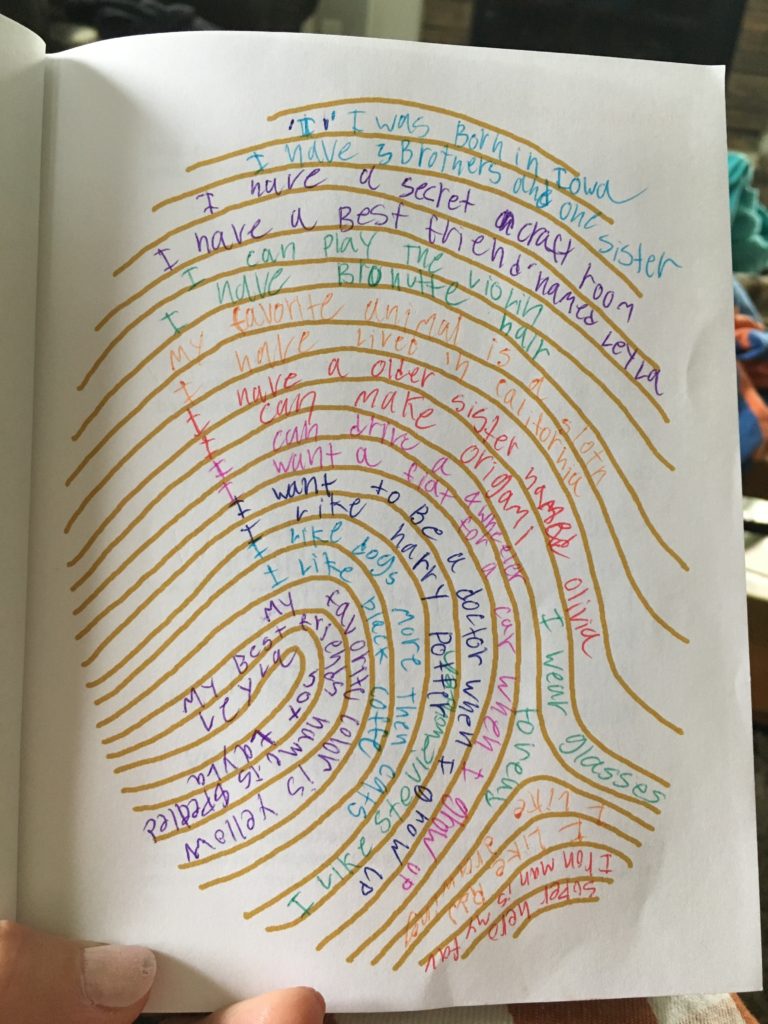 "I" I was Born in Iowa
I have 3 Brothers and one sister
I have a secret craft room
I have a Best friend named Leyla
I can play the violin
I have Bronutte hair
My favorite animal is a sloth
I have lived in california
I have a older sister named olivia
I can make origami
I can drive a
I want a fiat for a car when I grow up
I want to Be a doctor when I grow up
I like harry potter
I like dogs more then cats
I like black coffe
My favorite color is yellow
My Best friends name is spelled
Leyla not Layla
I wear glasses
I like
I like drawing
Iron man is my fav
super hero